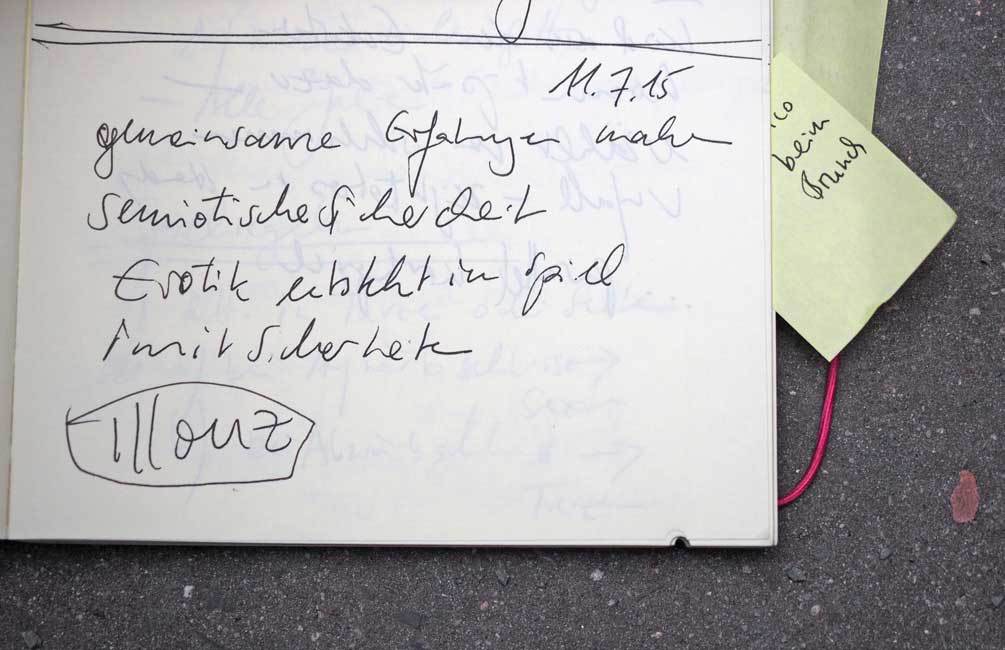 11.7.15
gemeinsame Erfahrungen machen
semiotische Sicherheit
Erotik entsteht im Spiel
mit Sicherheiten
Illouz
ico
beim
Brunch